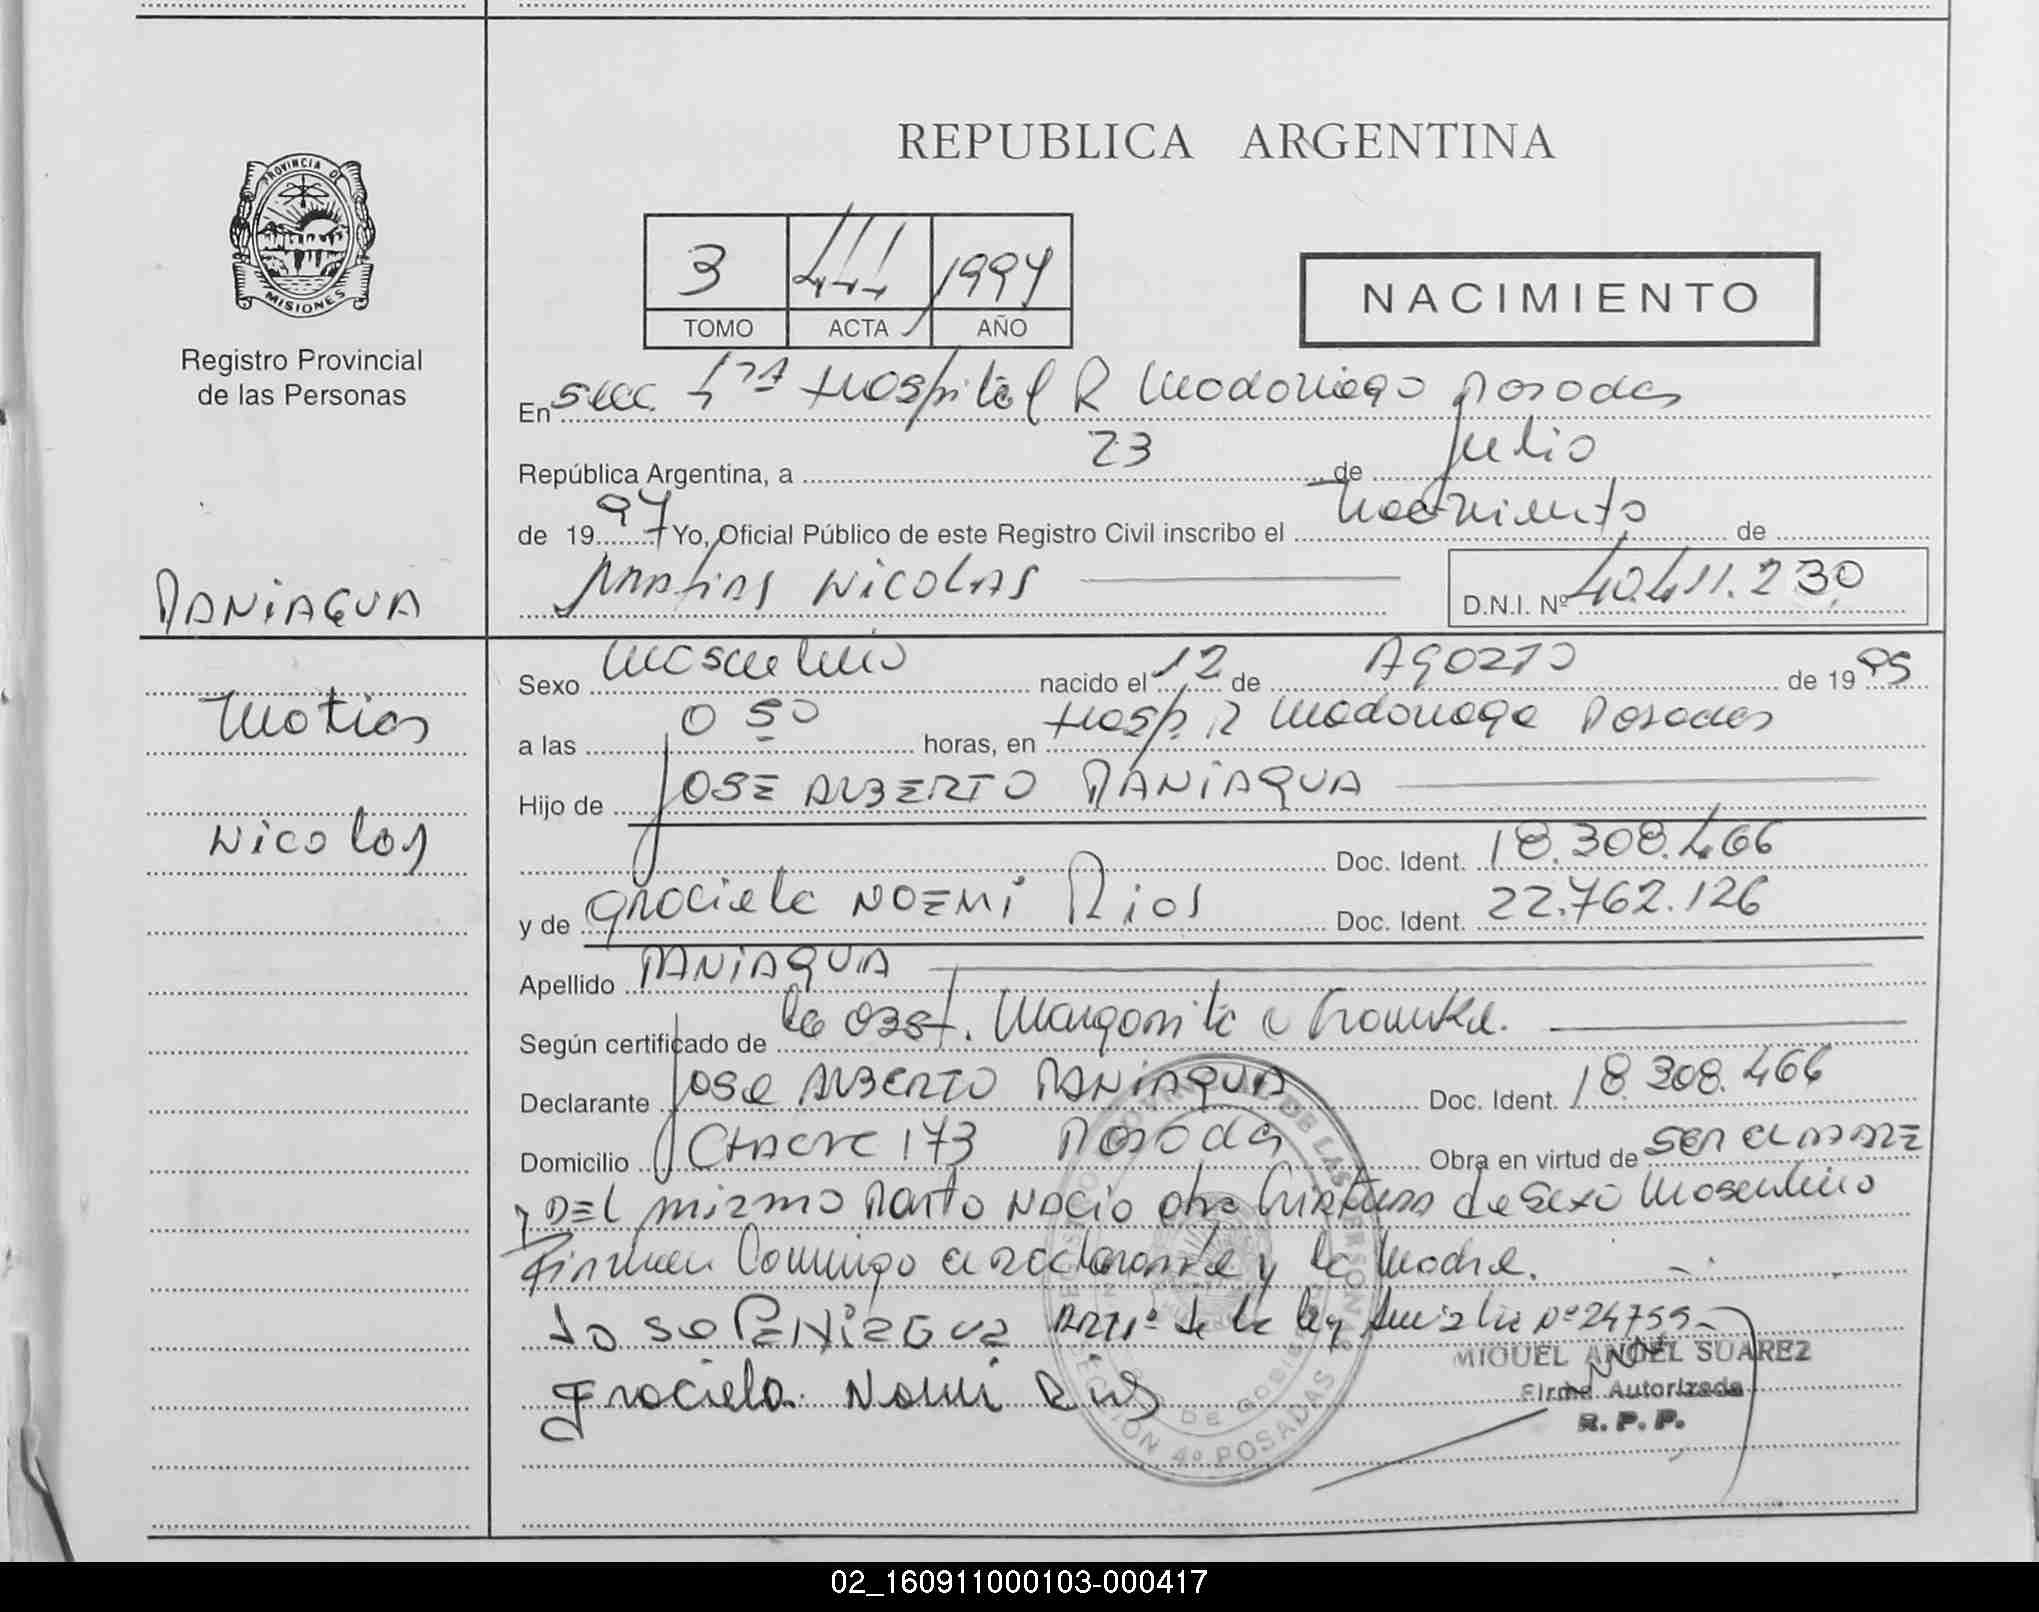 REPUBLICA ARGENTINA
PROVINCIA DE
MISIONES
Registro Provincial
de las Personas
3 444 1997
TOMO ACTA AÑO
NACIMIENTO
En Secc. 4ta Hospital R Madariaga Posadas
República Argentina, a 23 de Julio
de 1997 Yo, Oficial Público de este Registro Civil inscribo el Nacimiento de
Matias Nicolas D.N.I. Nº 40.411.230
PANIAGUA
Matias
Nicolas
Sexo Masculino nacido el 12 de Agozto de 1995
a las 0 50 horas, en Hosp. R Madariaga Posadas
Hijo de JOSE ALBERTO PANIAGUA
Doc. Ident. 18.308.466
y de Graciela NOEMI Rios Doc. Ident. 22.762.126
Apellido PANIAGUA
Según certificado de la Obst. Margarita
Declarante Jose ALBERTO PANIAGUA Doc. Ident. 18.308.466
Domicilio Chacra 173 Posadas Obra en virtud de ser el PADRE
y DEL mizmo Parto Nacio otra Criatura de Sexo Masculino
Firman Conmigo el declarante y la Madre.
JoSe PaNiaGua Art 1º de la ley Amnistia Nº 24755
Graciela Noemi Rios
MIGUEL ANGEL SUAREZ
Firma Autorizada
R. P. P.
DE LAS PERSONAS
SECCION 4º POSADAS
02_160911000103-000417